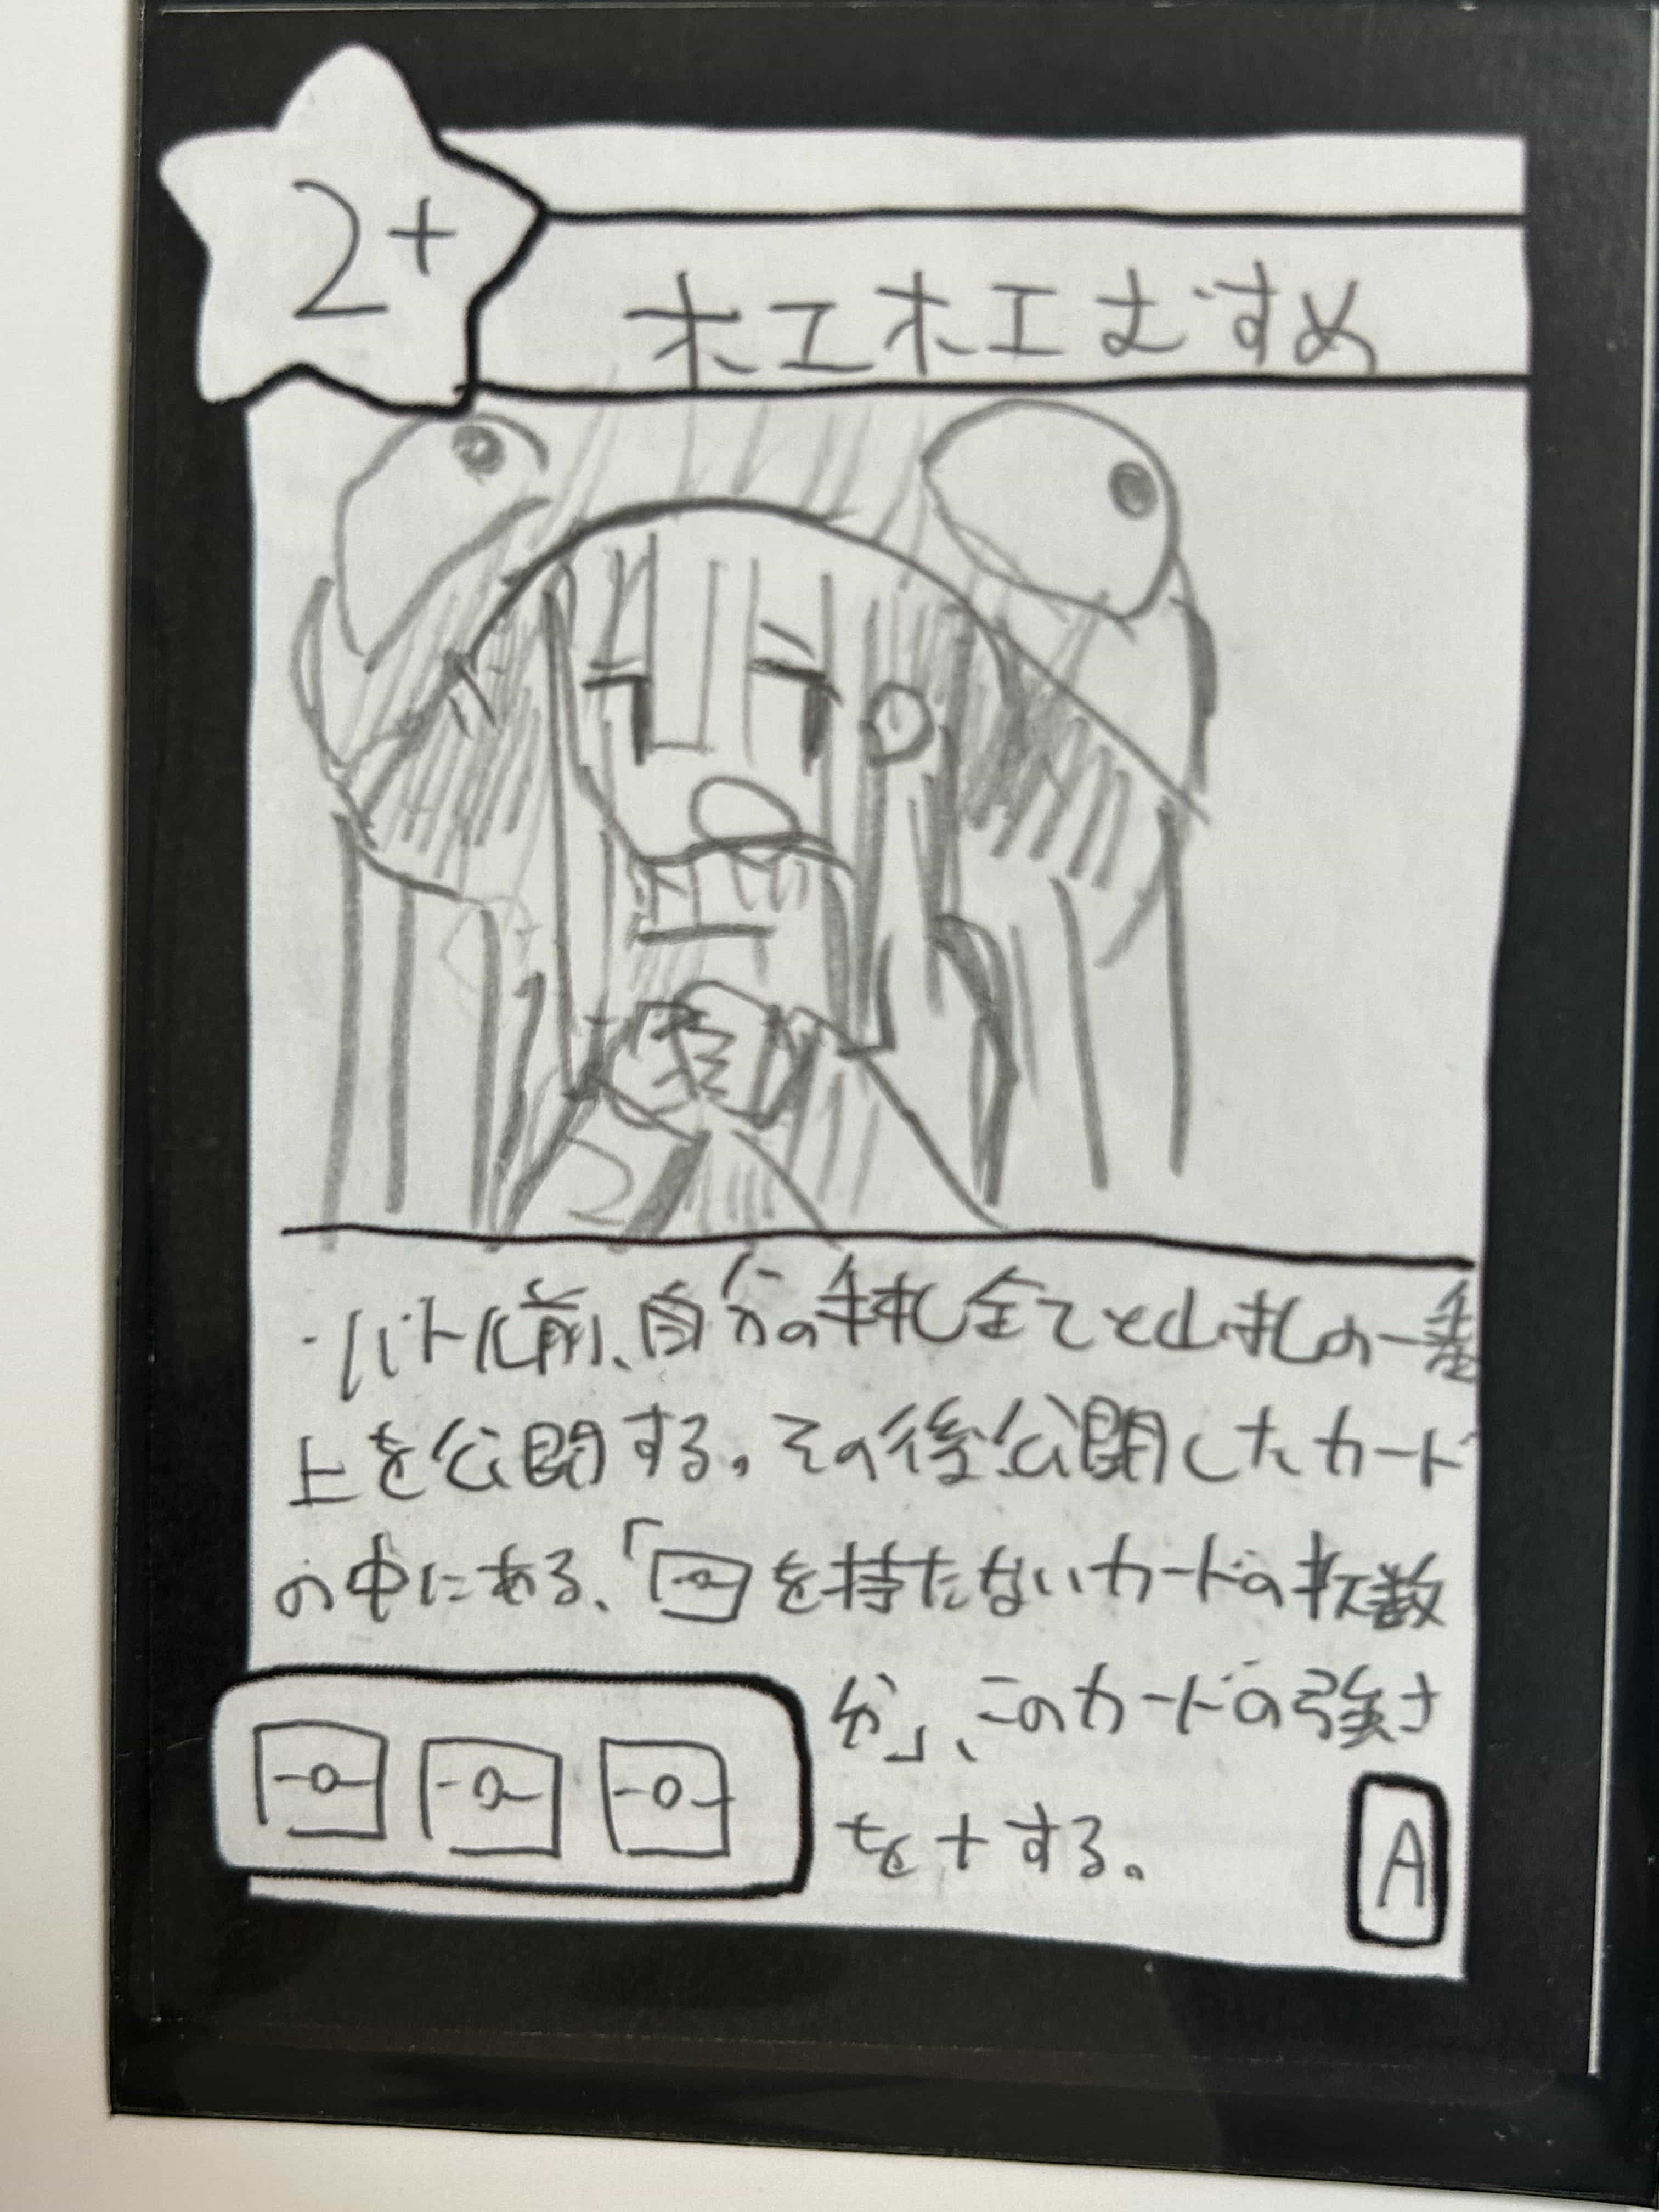 2+
ホエホエむすめ
・バトル前、自分の手札全てと山札の一番
上を公開する。その後公開したカード
の中にある、「を持たないカードの枚数
分」、このカードの強さ
を+する。
A